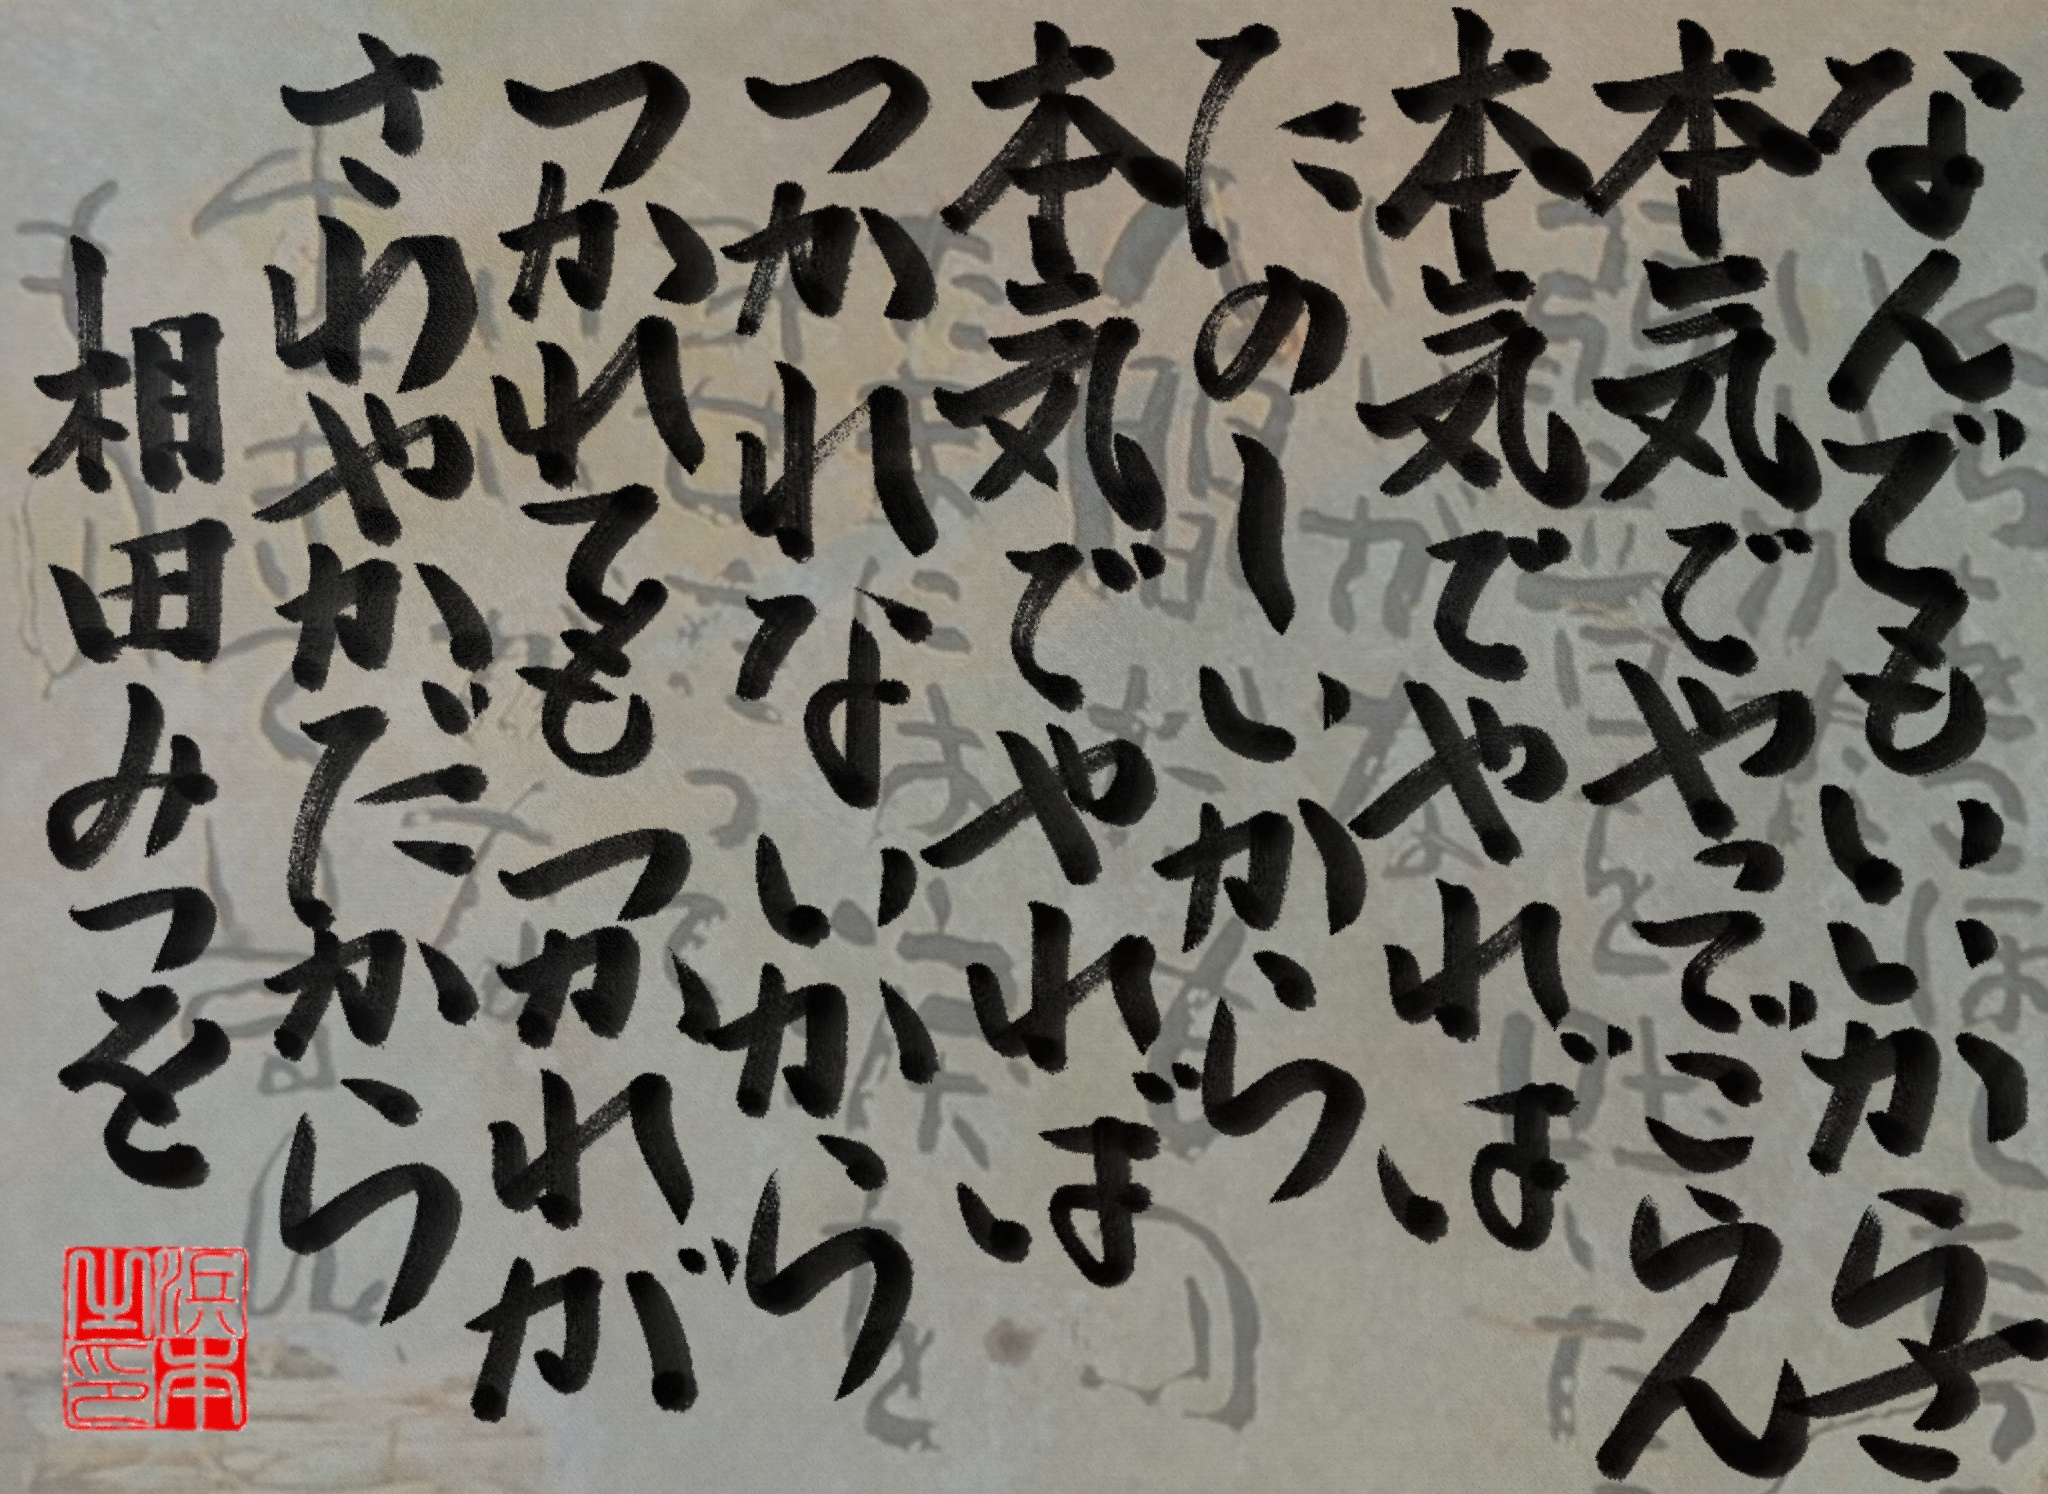 なんでもいいからさ
本気でやってごらん
本気でやれば
たのしいから
本気でやれば
つかれないから
つかれてもつかれが
さわやかだから
相田みつを
浜本之印